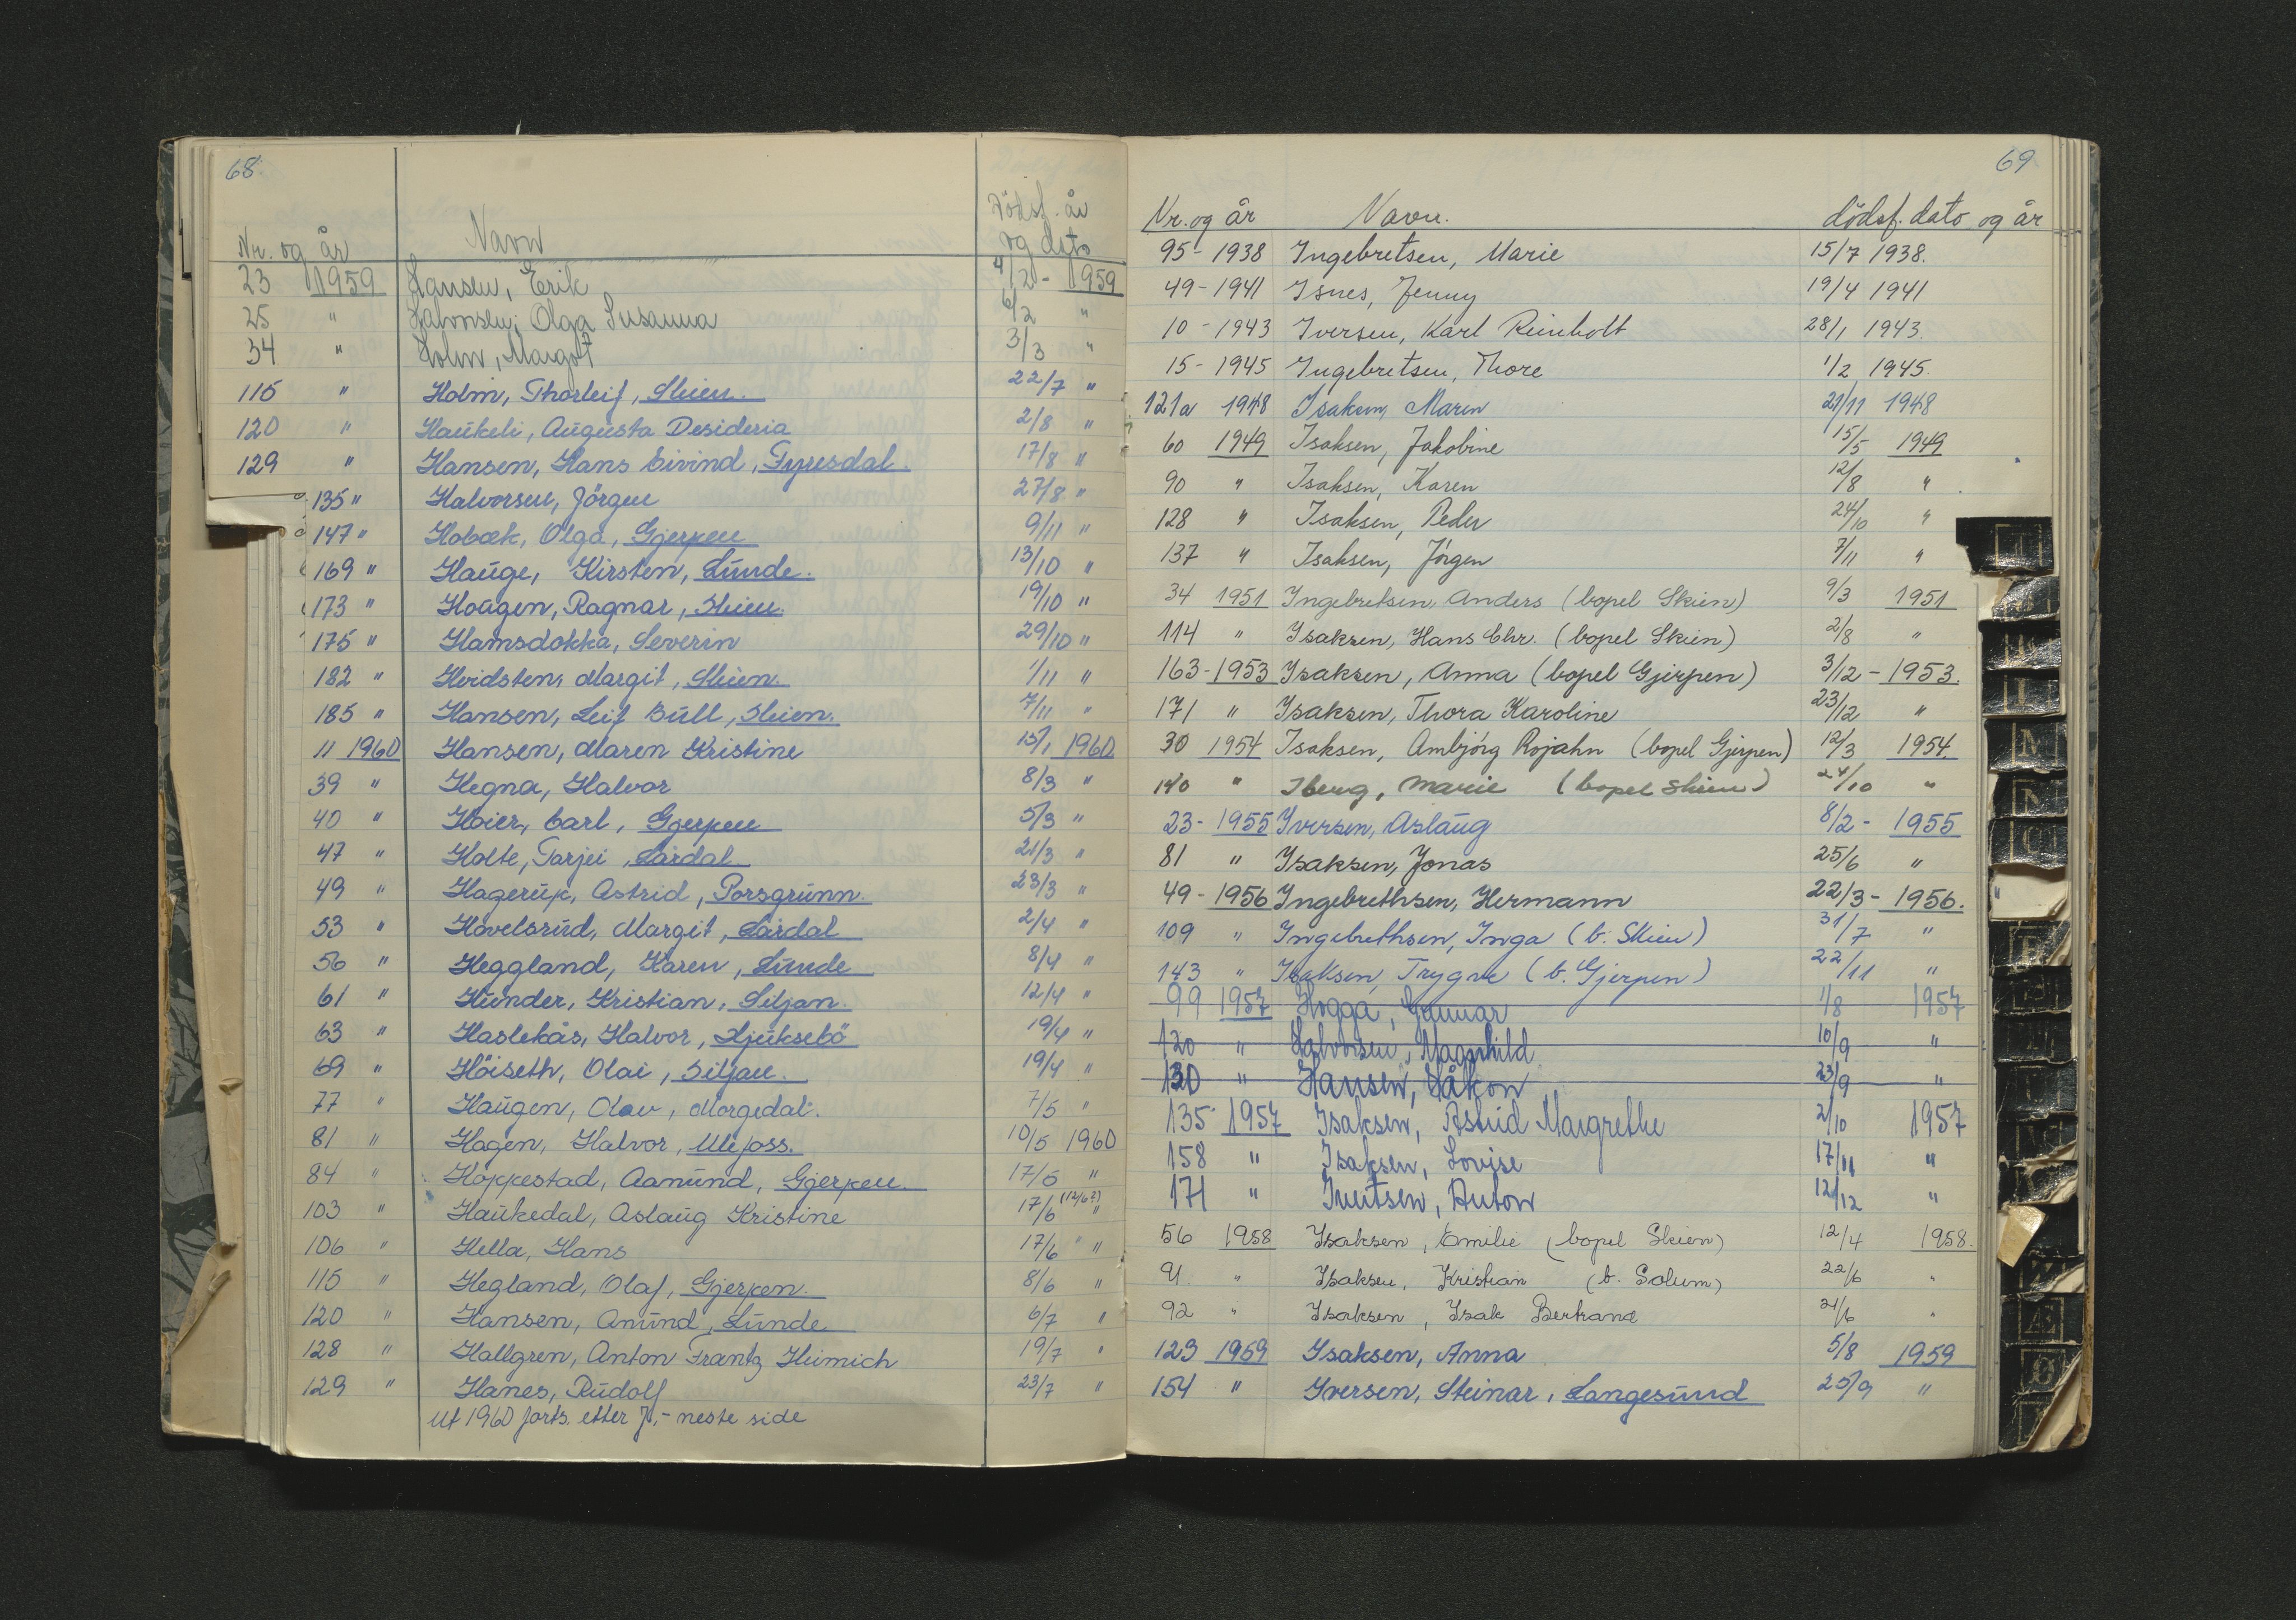 68
Nr. og år Navn Dödsf. år og dato
23 1959 Hansen, Erik 4/2 - 1959
25 " Halvorsen, Olga Susanna 6/2 "
34 " Holm, Margot 3/3 "
115 " Holm, Thorleif, Skien. 22/7 "
120 " Haukeli, Augusta Desideria 2/8 "
129 " Hansen, Hans Eivind, Fyresdal. 17/8 "
135 " Halvorsen, Jörgen 27/8 "
147 " Hobæk, Olga, Gjerpen 9/11 "
169 " Hauge, Kirsten, Lunde. 13/10 "
173 " Hougen, Ragnar, Skien. 19/10 "
175 " Hamsdokka, Severin 29/10 "
182 " Hvidsten, Margit, Skien. 1/11 "
185 " Hansen, Leif Bull, Skien. 7/11 "
11 1960 Hansen, Maren Kristine 15/1 1960
39 " Hegna, Halvor 8/3 "
40 " Hoier, Carl, Gjerpen 5/3 "
47 " Holte, Tarjei, Lårdal 21/3 "
49 " Hagerup, Astrid, Porsgrunn. 23/3 "
53 " Hovelsrud, Margit, Lardal 2/4 "
56 " Heggland, Karen, Lunde 8/4 "
61 " Hunder, Kristian, Siljan. 12/4 "
63 " Haslekås, Halvor, Hjuksebö 19/4 "
69 " Höiseth, Olai, Siljan. 19/4 "
77 " Haugen, Olav, Morgedal. 7/5 "
81 " Hagen, Halvor, Ulefoss. 10/5 1960
84 " Hoppestad, Aamund, Gjerpen. 17/5 "
103 " Haukedal, Aslaug Kristine 17/6 (12/6?) "
106 " Hella, Hans 17/6 "
115 " Hegland, Olaf, Gjerpen. 8/6 "
120 " Hansen, Anund, Lunde 6/7 "
128 " Hallgren, Anton Frantz Heinrich 19/7 "
129 " Hanes, Rudolf 23/7 "
Ut 1960 forts. etter J,- neste side
69
Nr. og år Navn. dödsf. dato og år
95 - 1938 Ingebretsen, Marie 15/7 1938.
49 - 1941 Isnes, Jenny 19/4 1941
10 - 1943 Iversen, Karl Reinholt 28/1 1943.
15 - 1945 Ingebretsen, Thore 1/2 1945.
121a 1948 Isaksen, Maren 21/11 1948
60 1949 Isaksen, Jakobine 15/5 1949
90 " Isaksen, Karen 12/8 "
128 " Isaksen, Peder 24/10 "
137 " Isaksen, Jörgen 7/11 "
34 1951 Ingebretsen, Anders (bopel Skien) 9/3 1951
114 " Isaksen, Hans Chr. (bopel Skien) 2/8 "
163 - 1953 Isaksen, Anna (bopel Gjerpen) 3/12 - 1953.
171 " Isaksen, Thora Karoline 23/12 "
30 1954 Isaksen, Ambjörg Rojahn (bopel Gjerpen) 12/3 1954.
140 " Iberg, Marie (bopel Skien) 24/10 "
23 - 1955 Iversen, Aslaug 8/2 - 1955
81 " Isaksen, Jonas 25/6 "
49 - 1956 Ingebrethsen, Hermann 22/3 - 1956.
109 " Ingebrethsen, Inga (b. Skien) 31/7 "
143 " Isaksen, Trygve (b. Gjerpen) 22/11 "
99 1957 Hogga, Gunnar 1/8 1957
120 " Halvorsen, Magnhild 10/9 "
130 " Hansen, Håkon 23/9 "
135 1957 Isaksen, Astrid Margrethe 2/10 1957
158 " Isaksen, Lovise 17/11 "
171 " Anton 12/12 "
56 1958 Isaksen, Emilie (bopel Skien) 12/4 1958.
91. " Isaksen, Kristian (b. Solum) 22/6 "
92 " Isaksen, Isak Bertrand 21/6 "
123 1959 Isaksen, Anna 5/8 1959
154 " Iversen, Steinar, Langesund 25/9 "